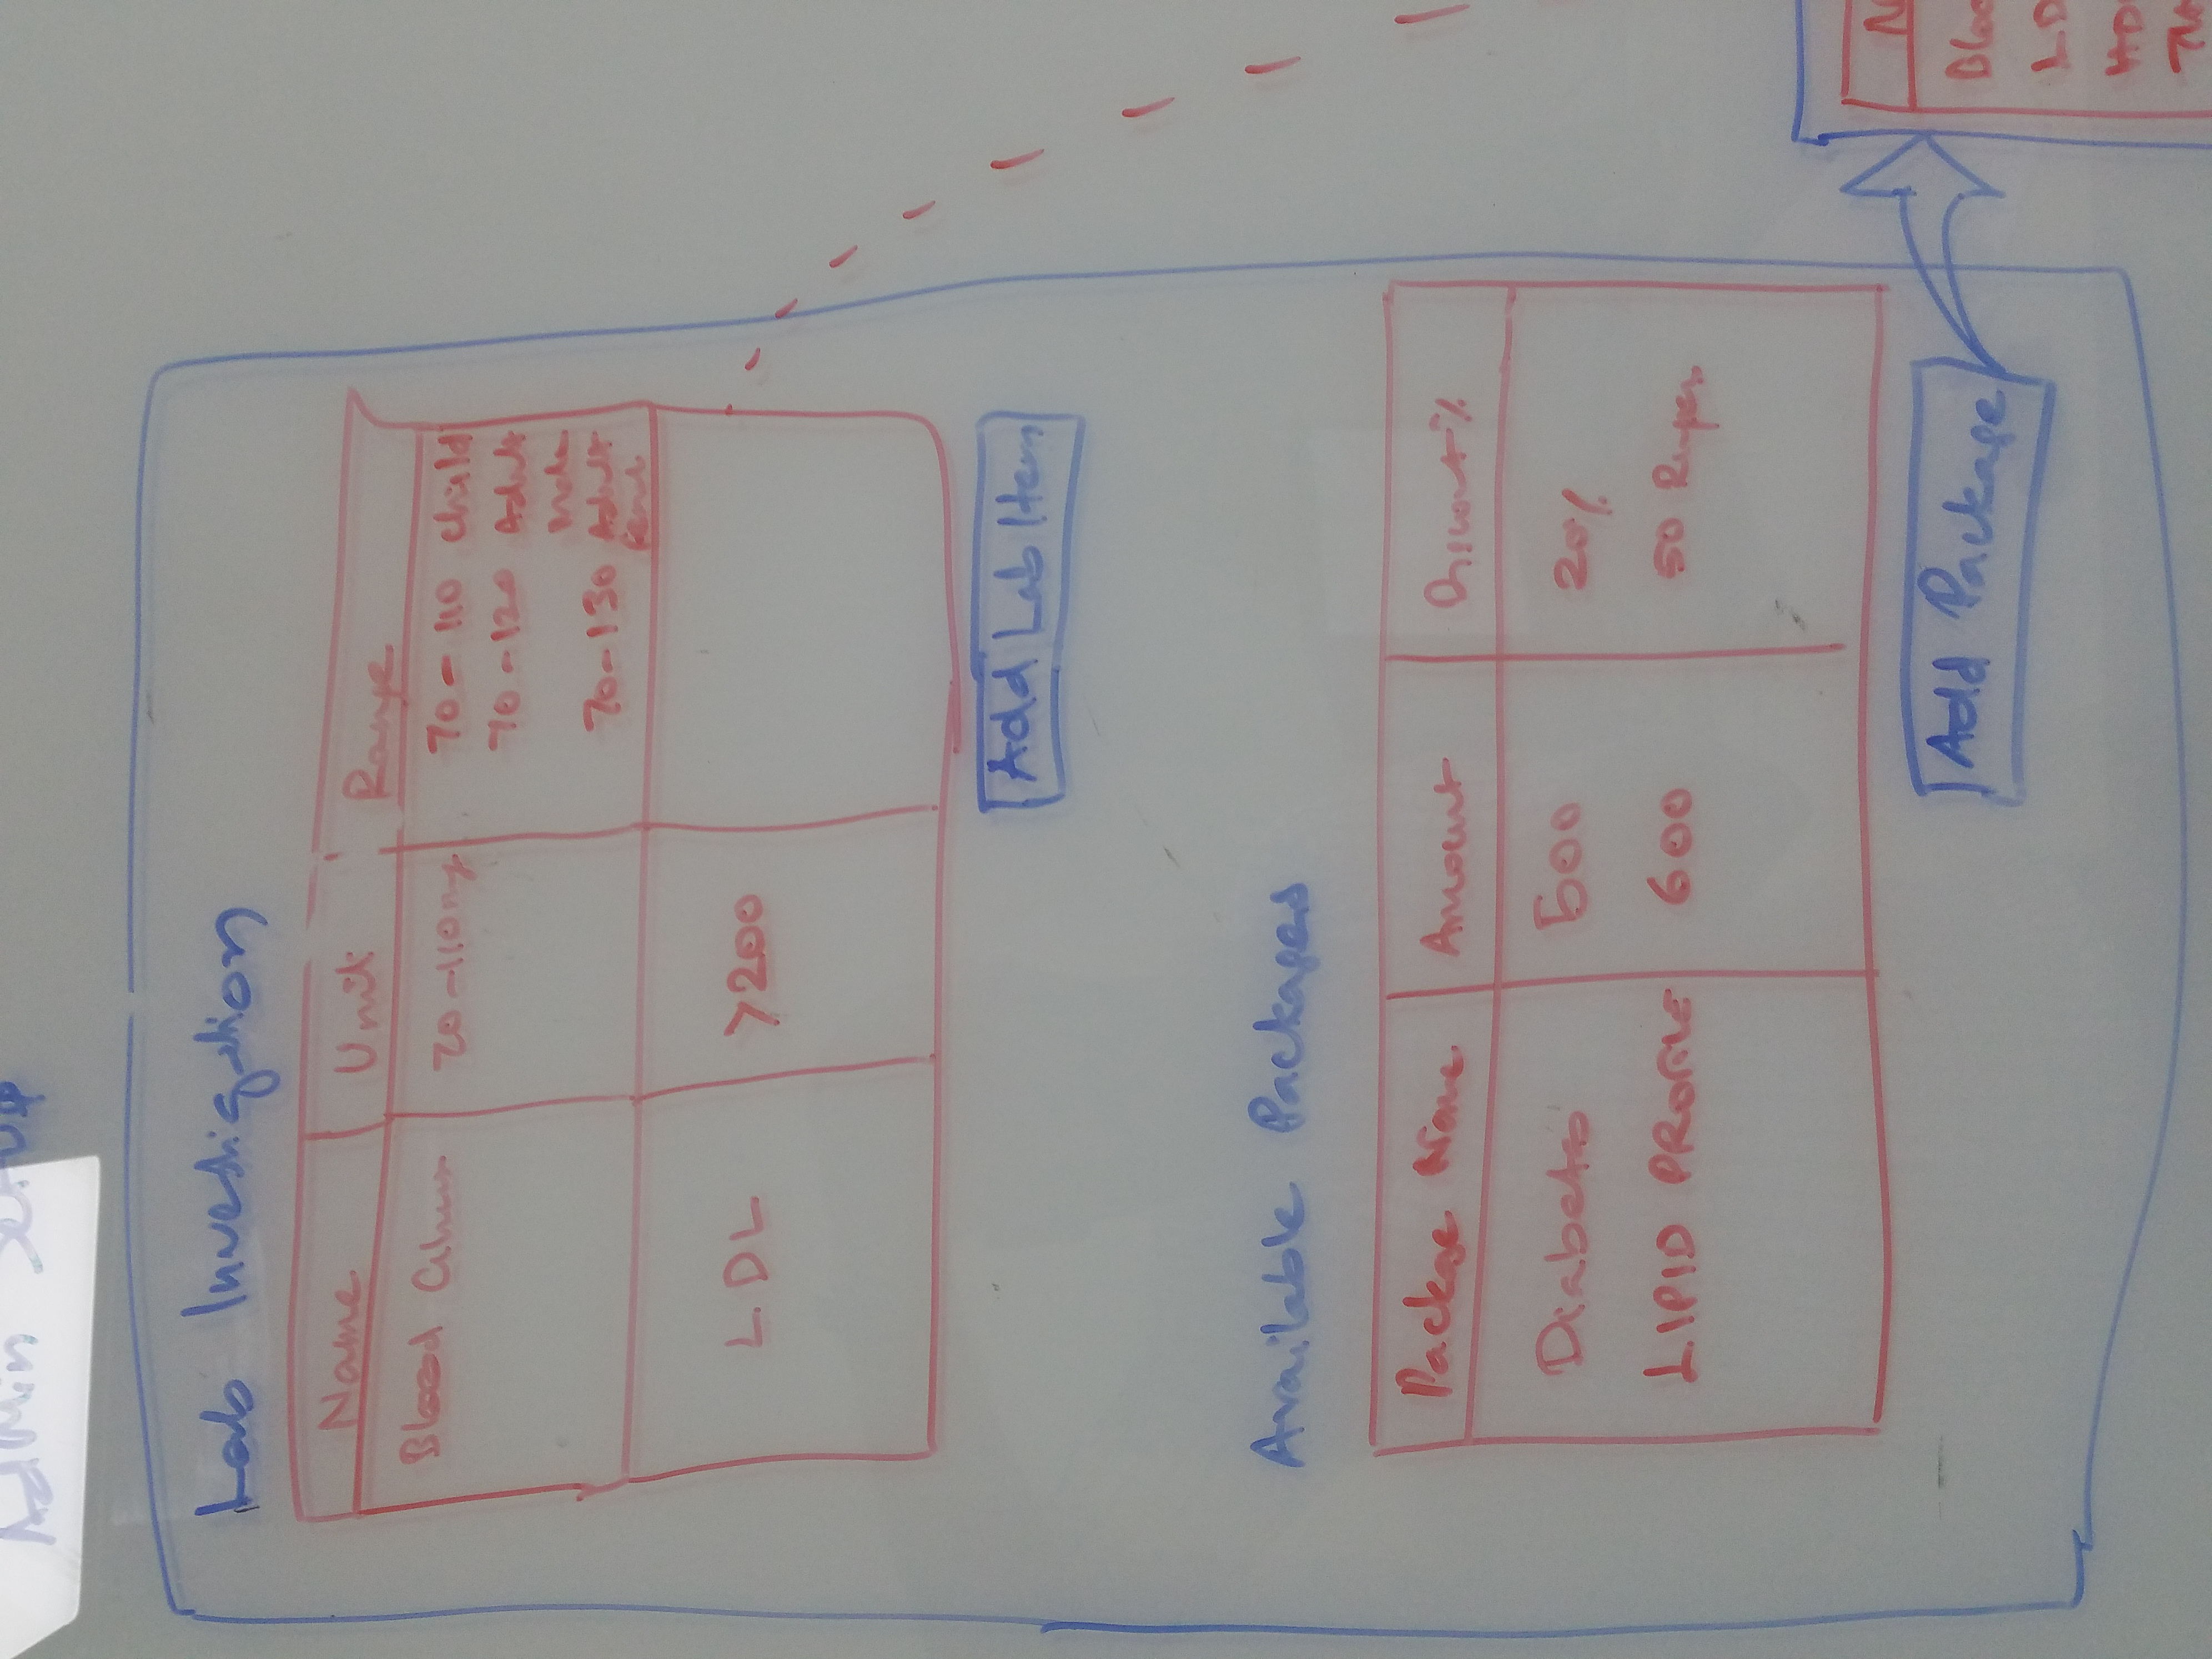 Admin Setup
Lab Investigation
Name Unit Range
Blood 70-110mg 70 - 110 child
70 - 120 Adult
male
70-130 Adult
LDL >200
Add Lab Item
Available Packages
Package Name Amount Discount%
Diabetes 500 20%
LIPID PROFILE 600 50 Rupes
Add Package
N
Bloo
LD
HD